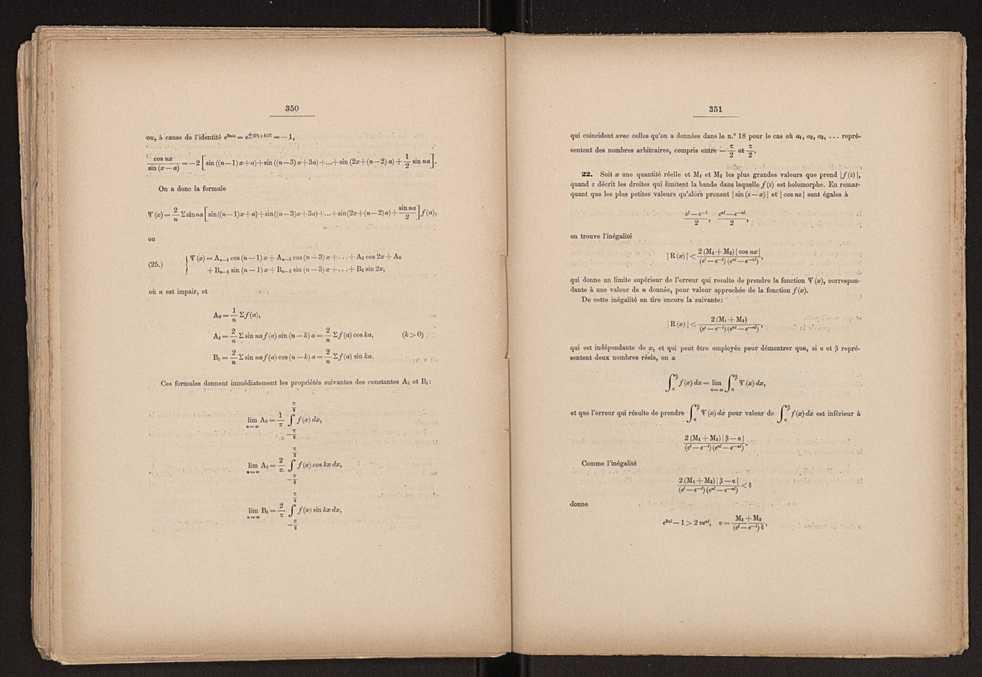 350
ou, à cause de l'identité e^{2nia} = e^{±(2k+1)iπ} = — 1,
\frac{cos nx}{sin (x — a)} = — 2 [sin ((n—1) x+a)+sin ((n—3) x+3a)+...+sin (2x+(n—2) a) + \frac{1}{2} sin na].
On a donc la formule
Ψ (x) = \frac{2}{n} Σ sin na [sin((n—1)x+a)+sin((n—3)x+3a)+...+sin(2x+(n—2)a) + \frac{sin na}{2}] f (a),
ou
(25.) { Ψ (x) = A_{n—1} cos (n — 1) x + A_{n—3} cos (n — 3) x + . . . + A_2 cos 2x + A_0
+ B_{n—1} sin (n — 1) x + B_{n—3} sin (n — 3) x + . . . + B_2 sin 2x,
où n est impair, et
A_0 = \frac{1}{n} Σ f (a),
A_k = \frac{2}{n} Σ sin na f (a) sin (n — k) a = \frac{2}{n} Σ f (a) cos ka, (k > 0)
B_k = \frac{2}{n} Σ sin na f (a) cos (n — k) a = \frac{2}{n} Σ f (a) sin ka.
Ces formules donnent immédiatement les propriétés suivantes des constantes A_k et B_k:
lim_{n=∞} A_0 = \frac{1}{π} ∫_{—\frac{π}{2}}^{\frac{π}{2}} f (x) dx,
lim_{n=∞} A_k = \frac{2}{π} ∫_{—\frac{π}{2}}^{\frac{π}{2}} f (x) cos kx dx,
lim_{n=∞} B_k = \frac{2}{π} ∫_{—\frac{π}{2}}^{\frac{π}{2}} f (x) sin kx dx,
351
qui coïncident avec celles qu'on a données dans le n.° 18 pour le cas où a_1, a_2, a_3, . . . repré-
sentent des nombres arbitraires, compris entre — \frac{π}{2} et \frac{π}{2}.
22. Soit x une quantité réelle et M_1 et M_2 les plus grandes valeurs que prend |f (z)|,
quand z décrit les droites qui limitent la bande dans laquelle f (z) est holomorphe. En remar-
quant que les plus petites valeurs qu'alors prenent | sin (z — x) | et | cos nz | sont égales à
\frac{e^l — e^{—l}}{2}, \frac{e^{nl} — e^{—nl}}{2},
on trouve l'inégalité
| R (x) | < \frac{2 (M_1 + M_2) | cos nx|}{(e^l — e^{—l}) (e^{nl} — e^{—nl})},
qui donne un limite supérieur de l'erreur qui resulte de prendre la fonction Ψ (x), correspon-
dante à une valeur de n donnée, pour valeur approchée de la fonction f (x).
De cette inégalité on tire encore la suivante:
| R (x) | < \frac{2 (M_1 + M_2)}{(e^l — e^{—l}) (e^{nl} — e^{—nl})},
qui est indépendante de x, et qui peut être employée pour démontrer que, si α et β repré-
sentent deux nombres réels, on a
∫_α^β f (x) dx = lim_{n=∞} ∫_α^β Ψ (x) dx,
et que l'erreur qui résulte de prendre ∫_α^β Ψ (x) dx pour valeur de ∫_α^β f (x) dx est inférieur à
\frac{2 (M_1 + M_2) | β — α |}{(e^l — e^{—l}) (e^{nl} — e^{—nl})}.
Comme l'inégalité
\frac{2 (M_1 + M_2) | β — α |}{(e^l — e^{—l}) (e^{nl} — e^{—nl})} < δ
donne
e^{2nl} — 1 > 2 ve^{nl}, v = \frac{M_1 + M_2}{(e^l — e^{—l}) δ},